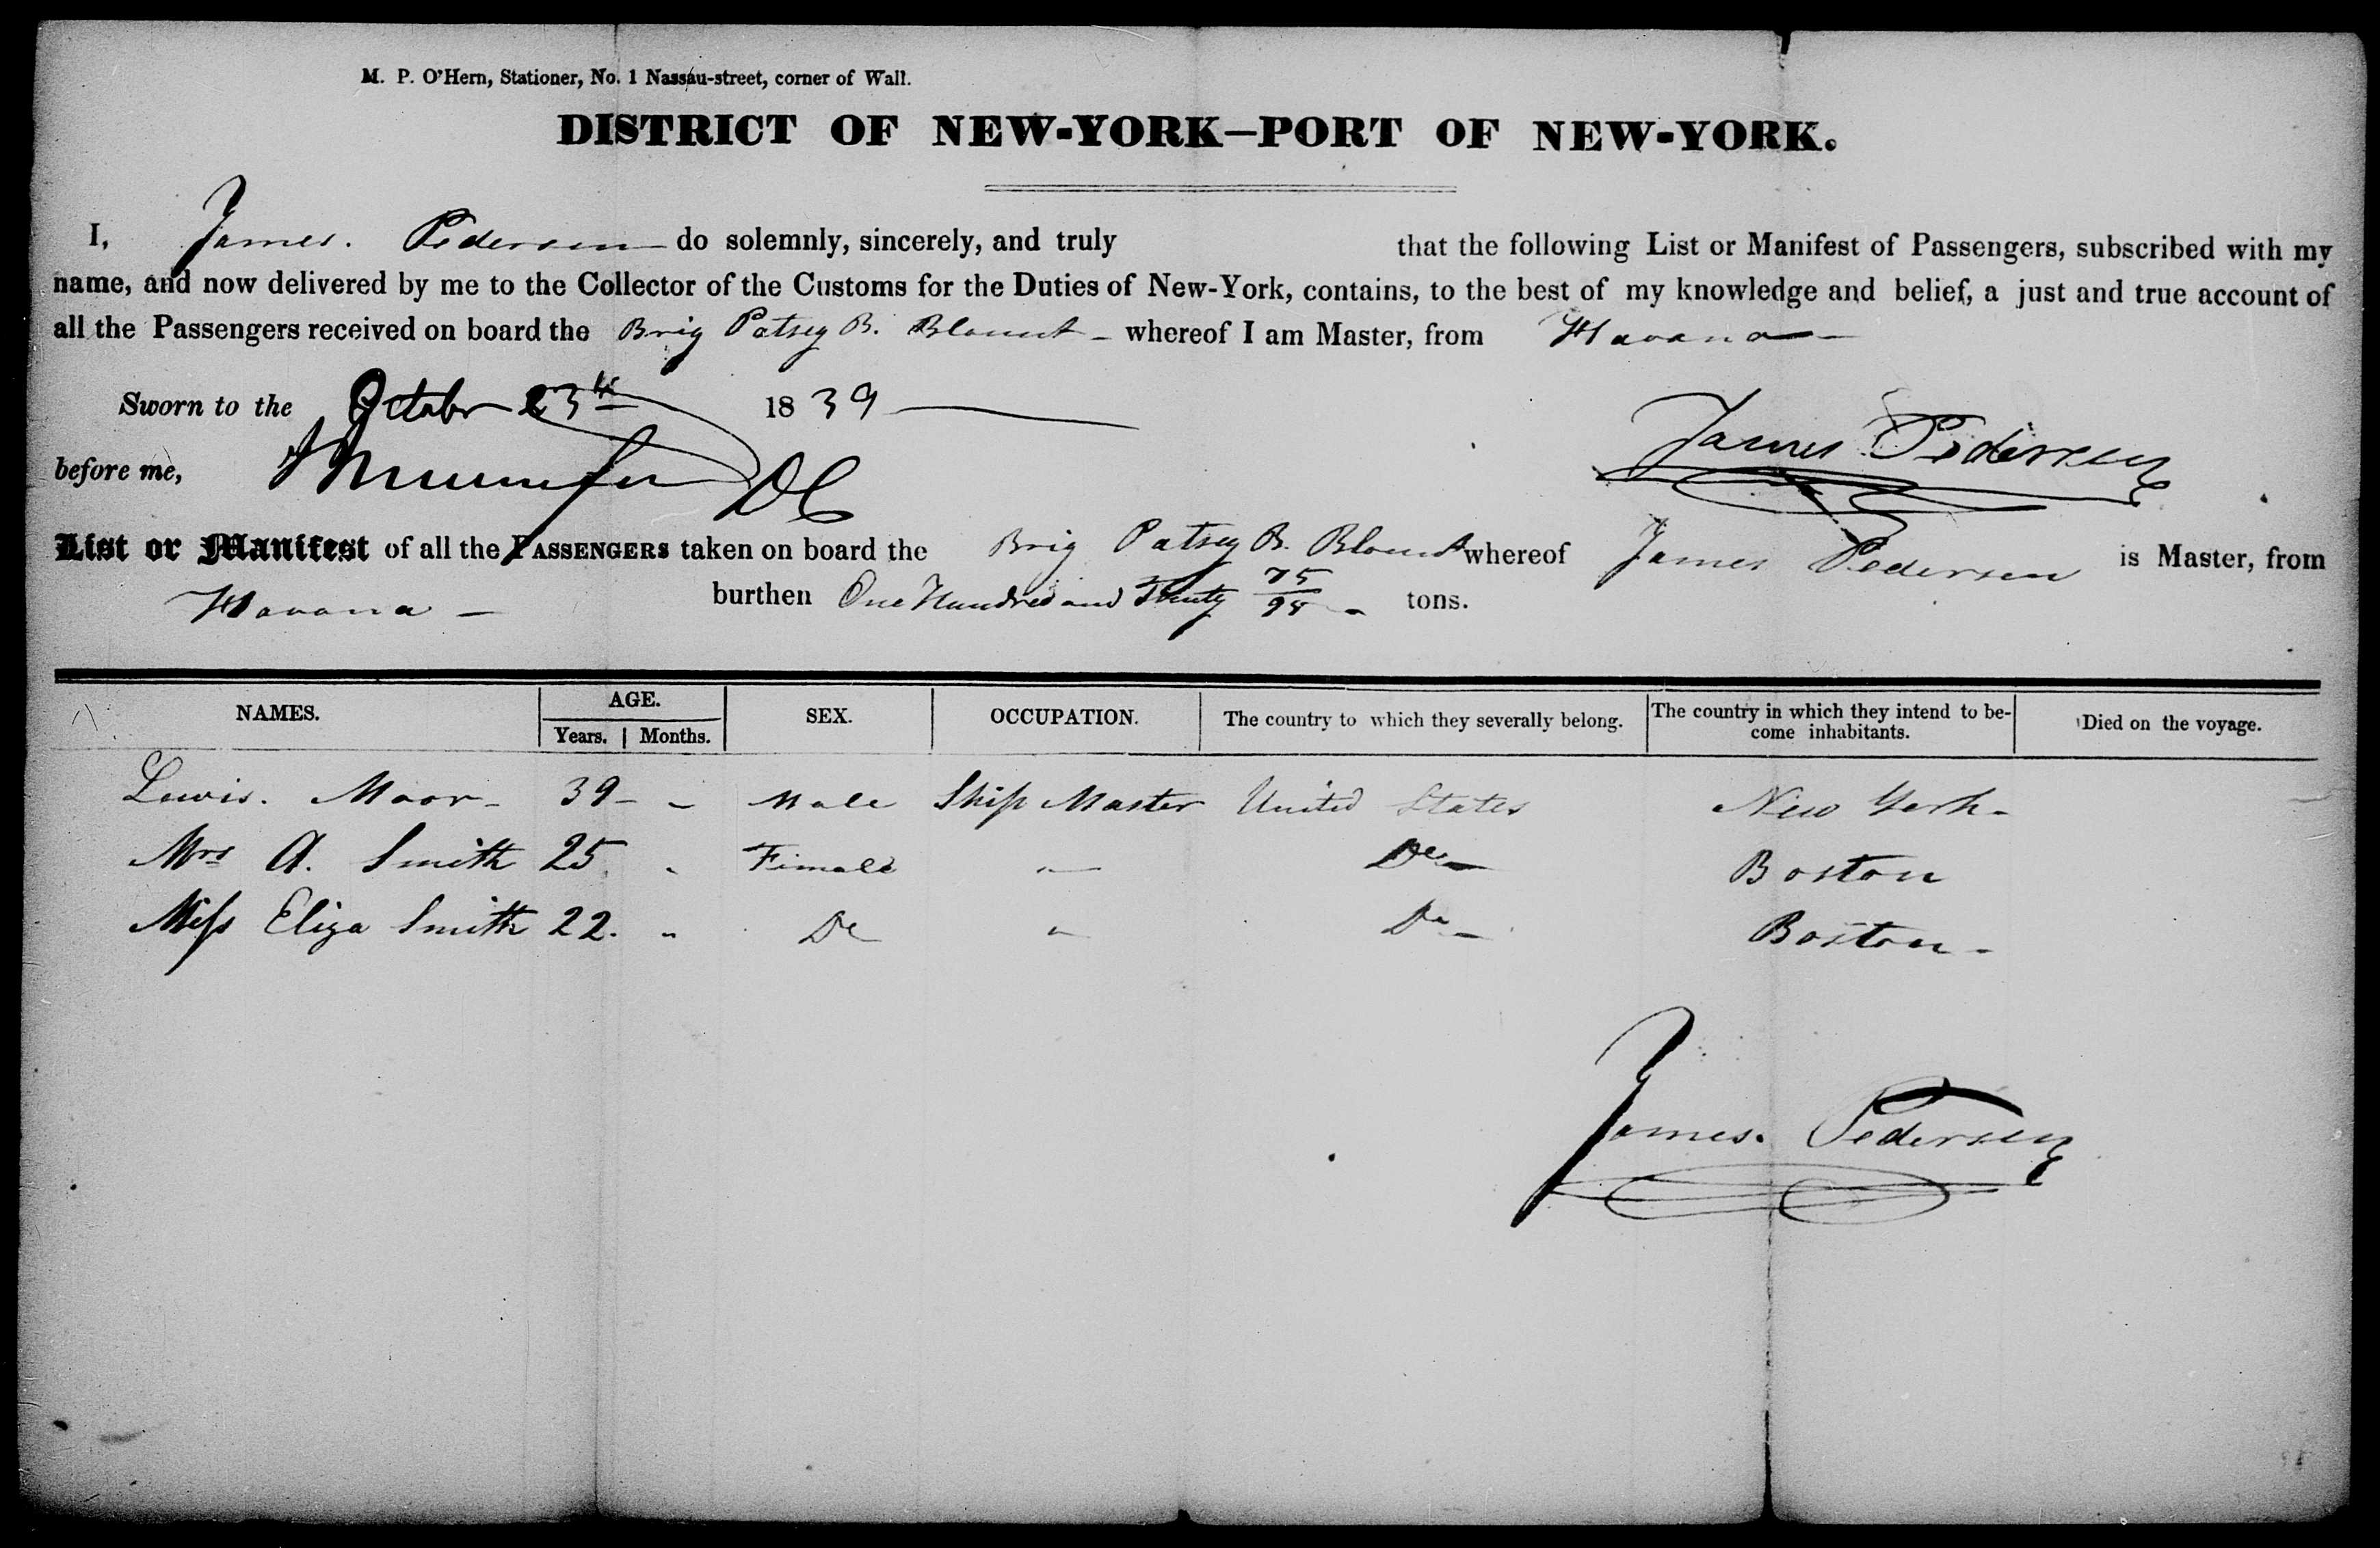 M. P. O'Hern, Stationer, No. 1 Nassau-street, corner of Wall.
DISTRICT OF NEW-YORK—PORT OF NEW-YORK.
I, James. Pedersen do solemnly, sincerely, and truly that the following List or Manifest of Passengers, subscribed with my
name, and now delivered by me to the Collector of the Customs for the Duties of New-York, contains, to the best of my knowledge and belief, a just and true account of
all the Passengers received on board the Brig Patsey B. Blount - whereof I am Master, from Havana
Sworn to the October 23th 1839
James Pedersen
before me, DC
List or Manifest of all the PASSENGERS taken on board the Brig Patsey B. Blount whereof James Pedersen is Master, from
Havana - burthen One Hundred and 75/95 - tons.
NAMES. AGE. SEX. OCCUPATION. The country to which they severally belong. The country in which they intend to be-
come inhabitants. Died on the voyage.
Years. Months.
Lewis. Moor - 39 - - Male Ship Master United States New York -
Mrs A. Smith 25. " Female " Do - Boston
Miss Eliza Smith 22. " Do " Do - Boston -
James. Pedersen